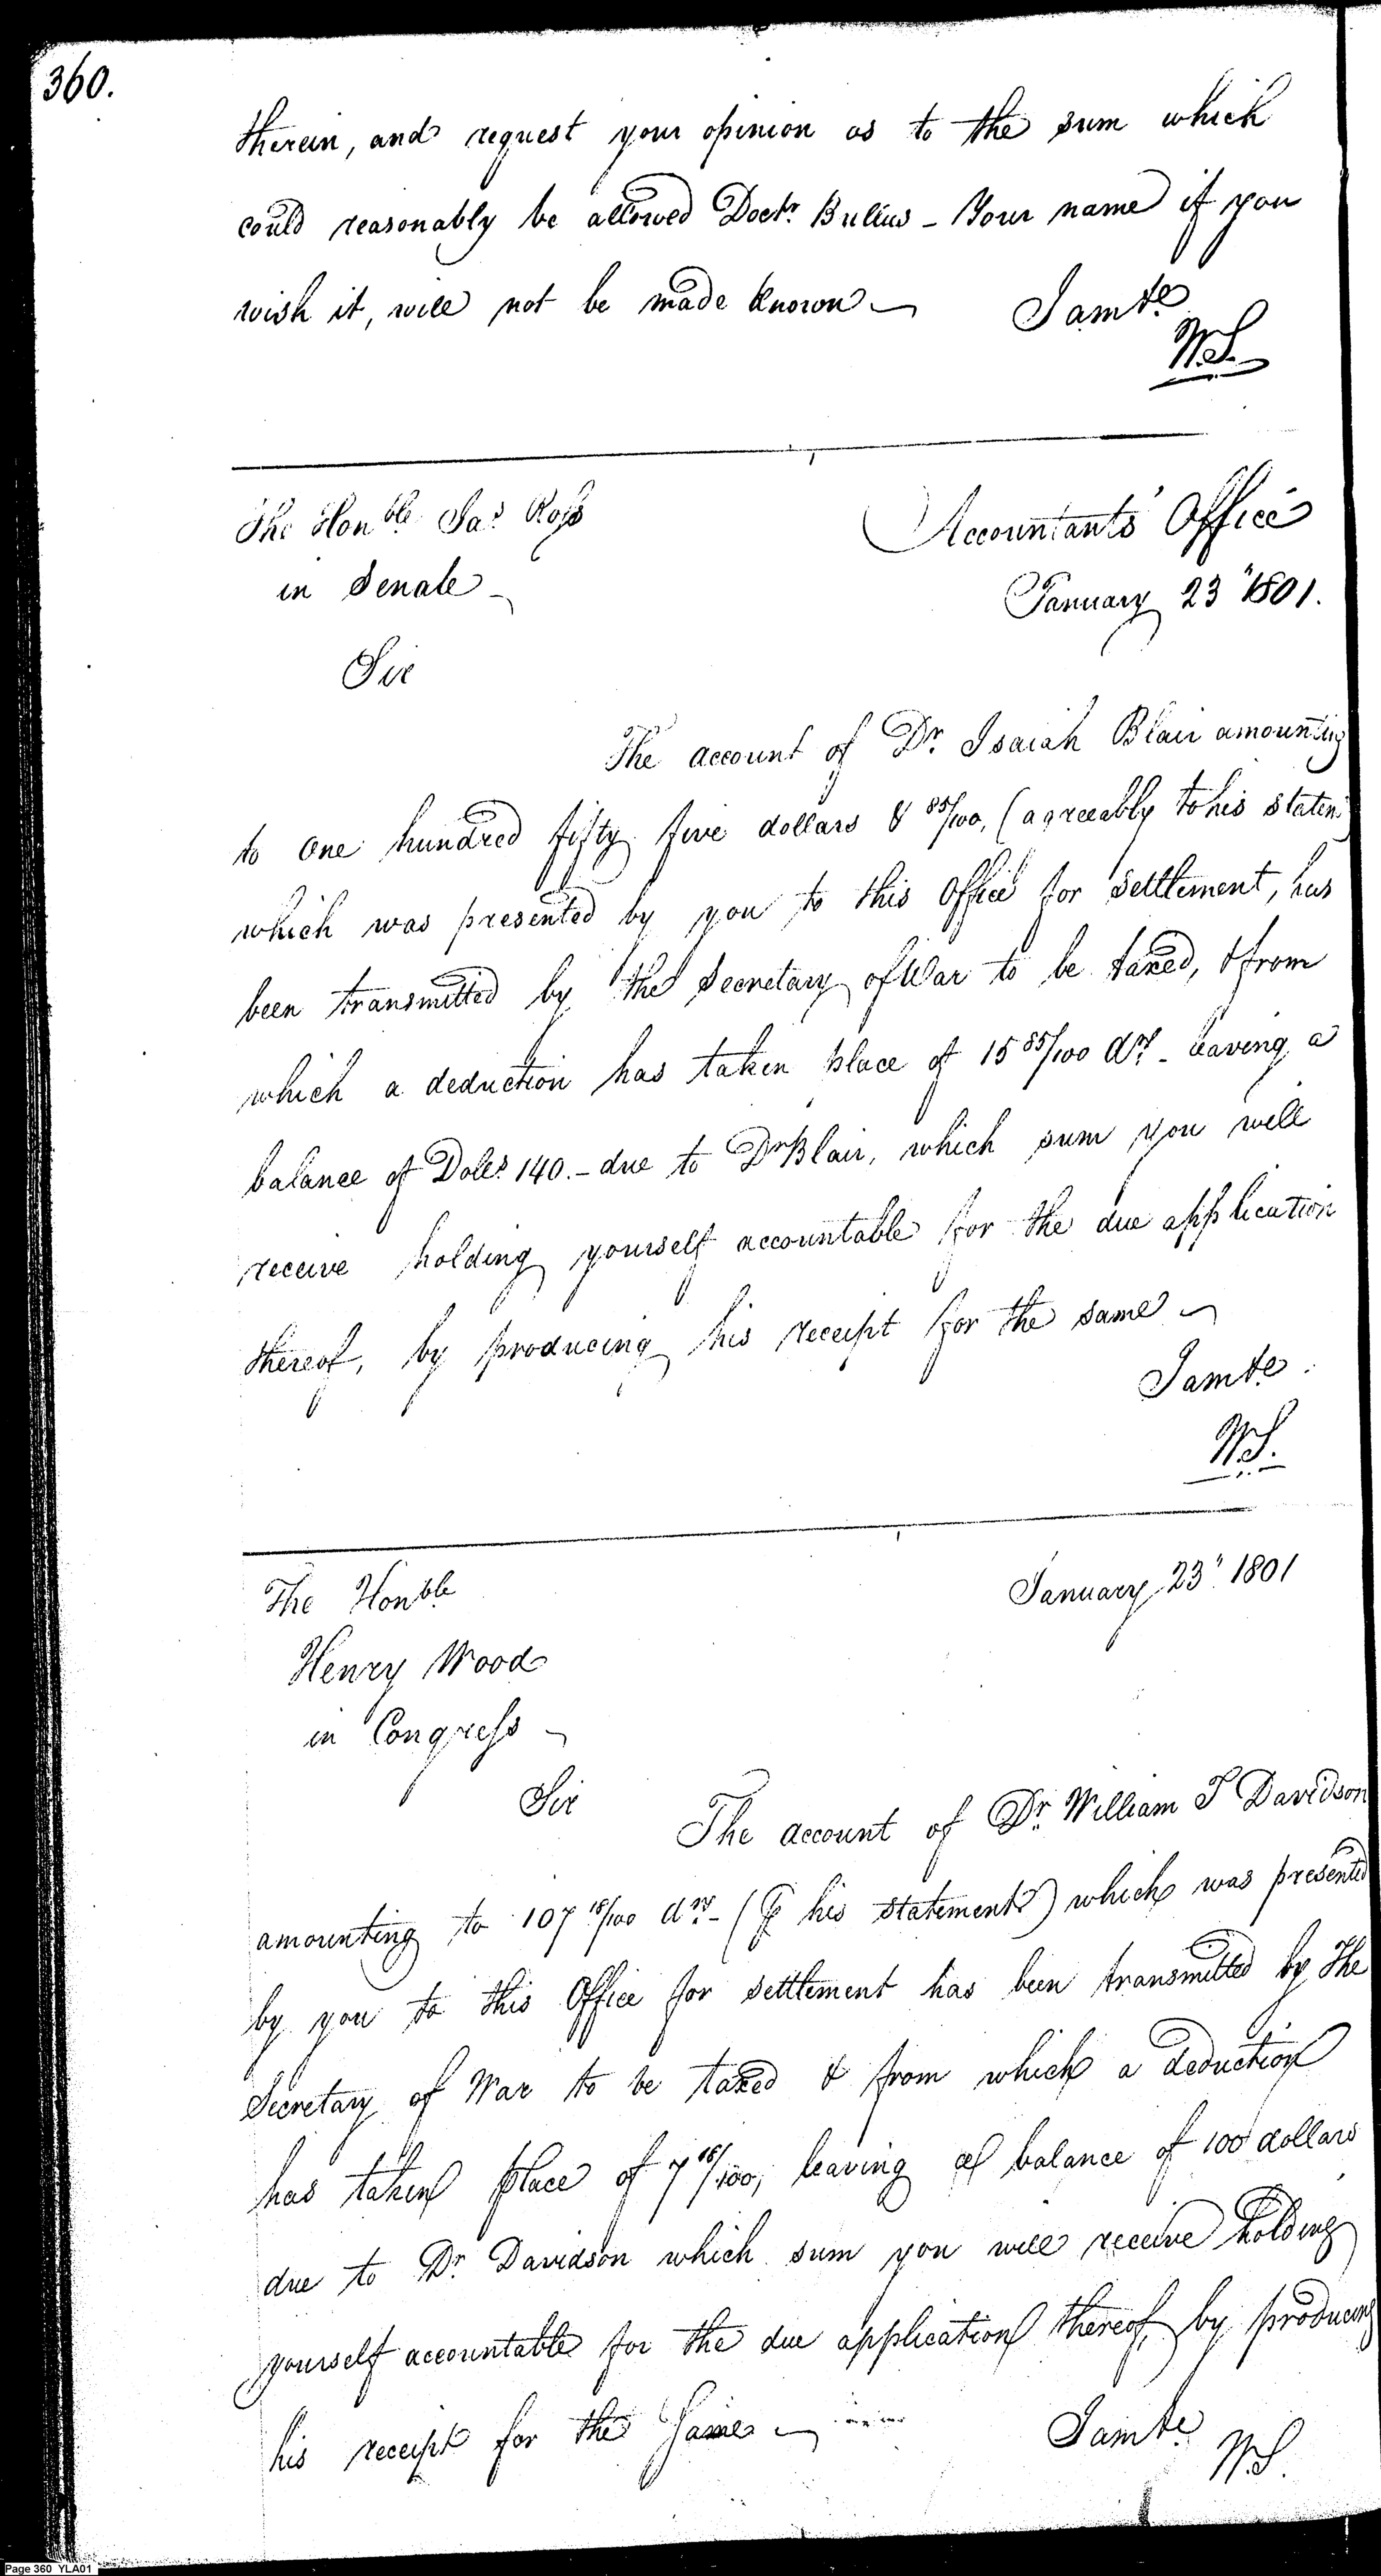 360.
therein, and request your opinion as to the sum which
could reasonably be allowed Doctr. Bulius - Your name if you
wish it, will not be made known
I am &c
W.S.
The Honble Jas Ross
in Senate
Accountants Office
January 23" 1801.
Sir
The account of Dr. Isaiah Blair amounting
to one hundred fifty five dollars & 85/100, (agreeably to his statem
which was presented by you to this Office for settlement, has
been transmitted by the Secretary of War to be taxed, & from
which a deduction has taken place of 15 85/100 drs - leaving a
balance of Dolls. 140. - due to Dr Blair, which sum you will
receive holding yourself accountable for the due application
thereof, by producing his receipt for the same
I am &c.
W.S.
The Honble
January 23" 1801
Henry Wood
in Congress -
Sir
The account of Dr. William T Davidson
amounting to 107 18/100 drs - (⅌ his statement) which was presented
by you to this Office for settlement has been transmitted by the
Secretary of War to be taxed & from which a deduction
has taken place of 7 18/100, leaving a balance of 100 dollars
due to Dr. Davidson which sum you will receive holding
yourself accountable for the due application thereof, by producing
his receipt for the same
I am &c
W.S.
Page 360 YLA01